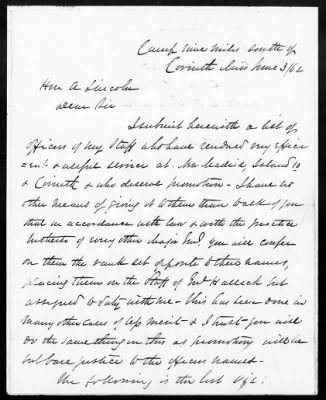 Camp nine miles south of
Corinth Miss June 3/62
Hon A. Lincoln
Dear Sir
I submit herewith a list of
officers of my Staff who have rendered very effici
=ent & useful service at New Madrid, Island 10
& Corinth & who deserve promotion - I have no
other means of giving it to them than to ask of you
that in accordance with law & with the practice
in other Genl you will confer
on them the rank set opposite to their names,
placing them on the Staff of Genl Halleck but
assigned to duty with me - This has been done in
many other cases of less merit - & I trust you will
do the same thing in this as promotion will be
but bare justice to the officers named -
The following is the list viz: